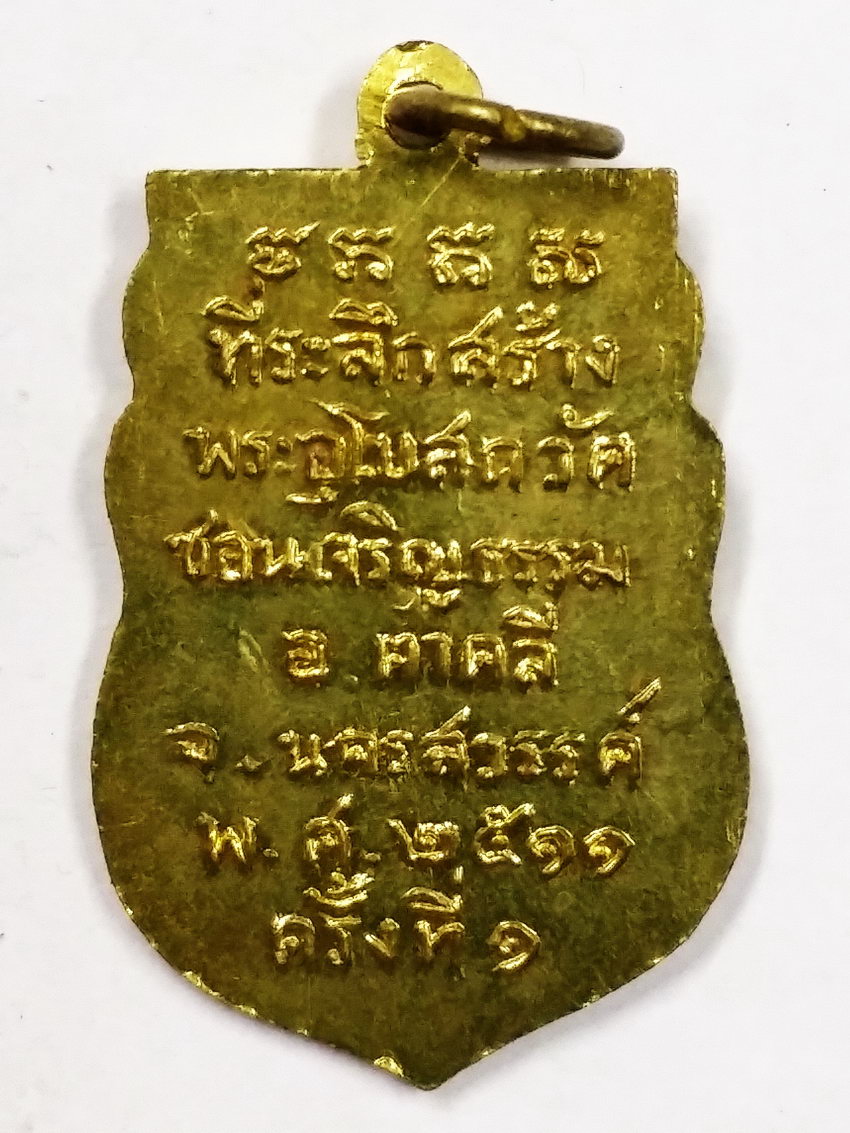 ที่ระลึกสร้าง
พระอุโบสถวัด
ซอนเจริญธรรม
อ. ตาคลี
จ. นครสวรรค์
พ.ศ. ๒๕๑๑
ครั้งที่ ๑